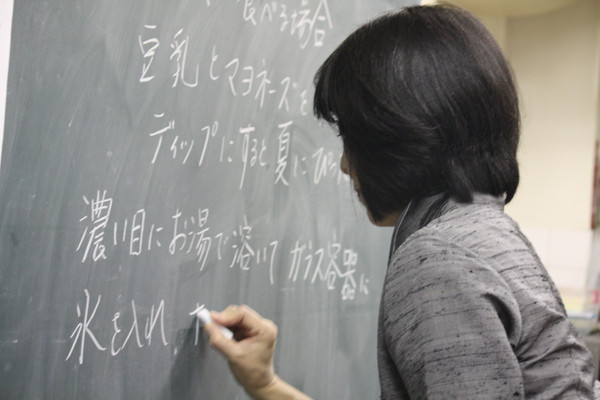 食べる場合
豆乳とマヨネーズを
ディップにすると夏にぴっ
濃い目にお湯で溶いてガラス容器に
氷を入れ